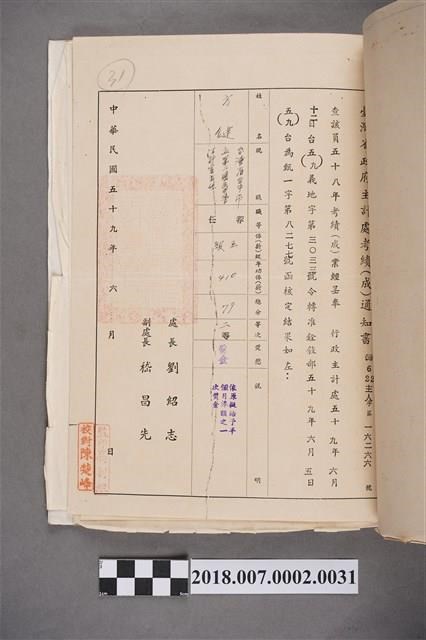 31
臺灣省政府主計處考績(成)通知書
6 22 主人 一六二六六 號
查該員五十八年考績(成)業經呈奉 行政主計處五十九年六月
十二日台(五九)義地字第三〇三三號令轉准銓敘部五十九年六月五日
(五九)台為甄一字第八二七七號函核定結果如左:
姓名 現職 職等 俸(薪)級年功俸(薪) 總分 等次 獎懲 說明
方
410
79
二等
獎金
依原擬給予半
個月俸額之一
次獎金
處長 劉紹志
副處長 嵇昌先
中華民國五十九年六月 日
校對陳楚峰
2018.007.0002.0031